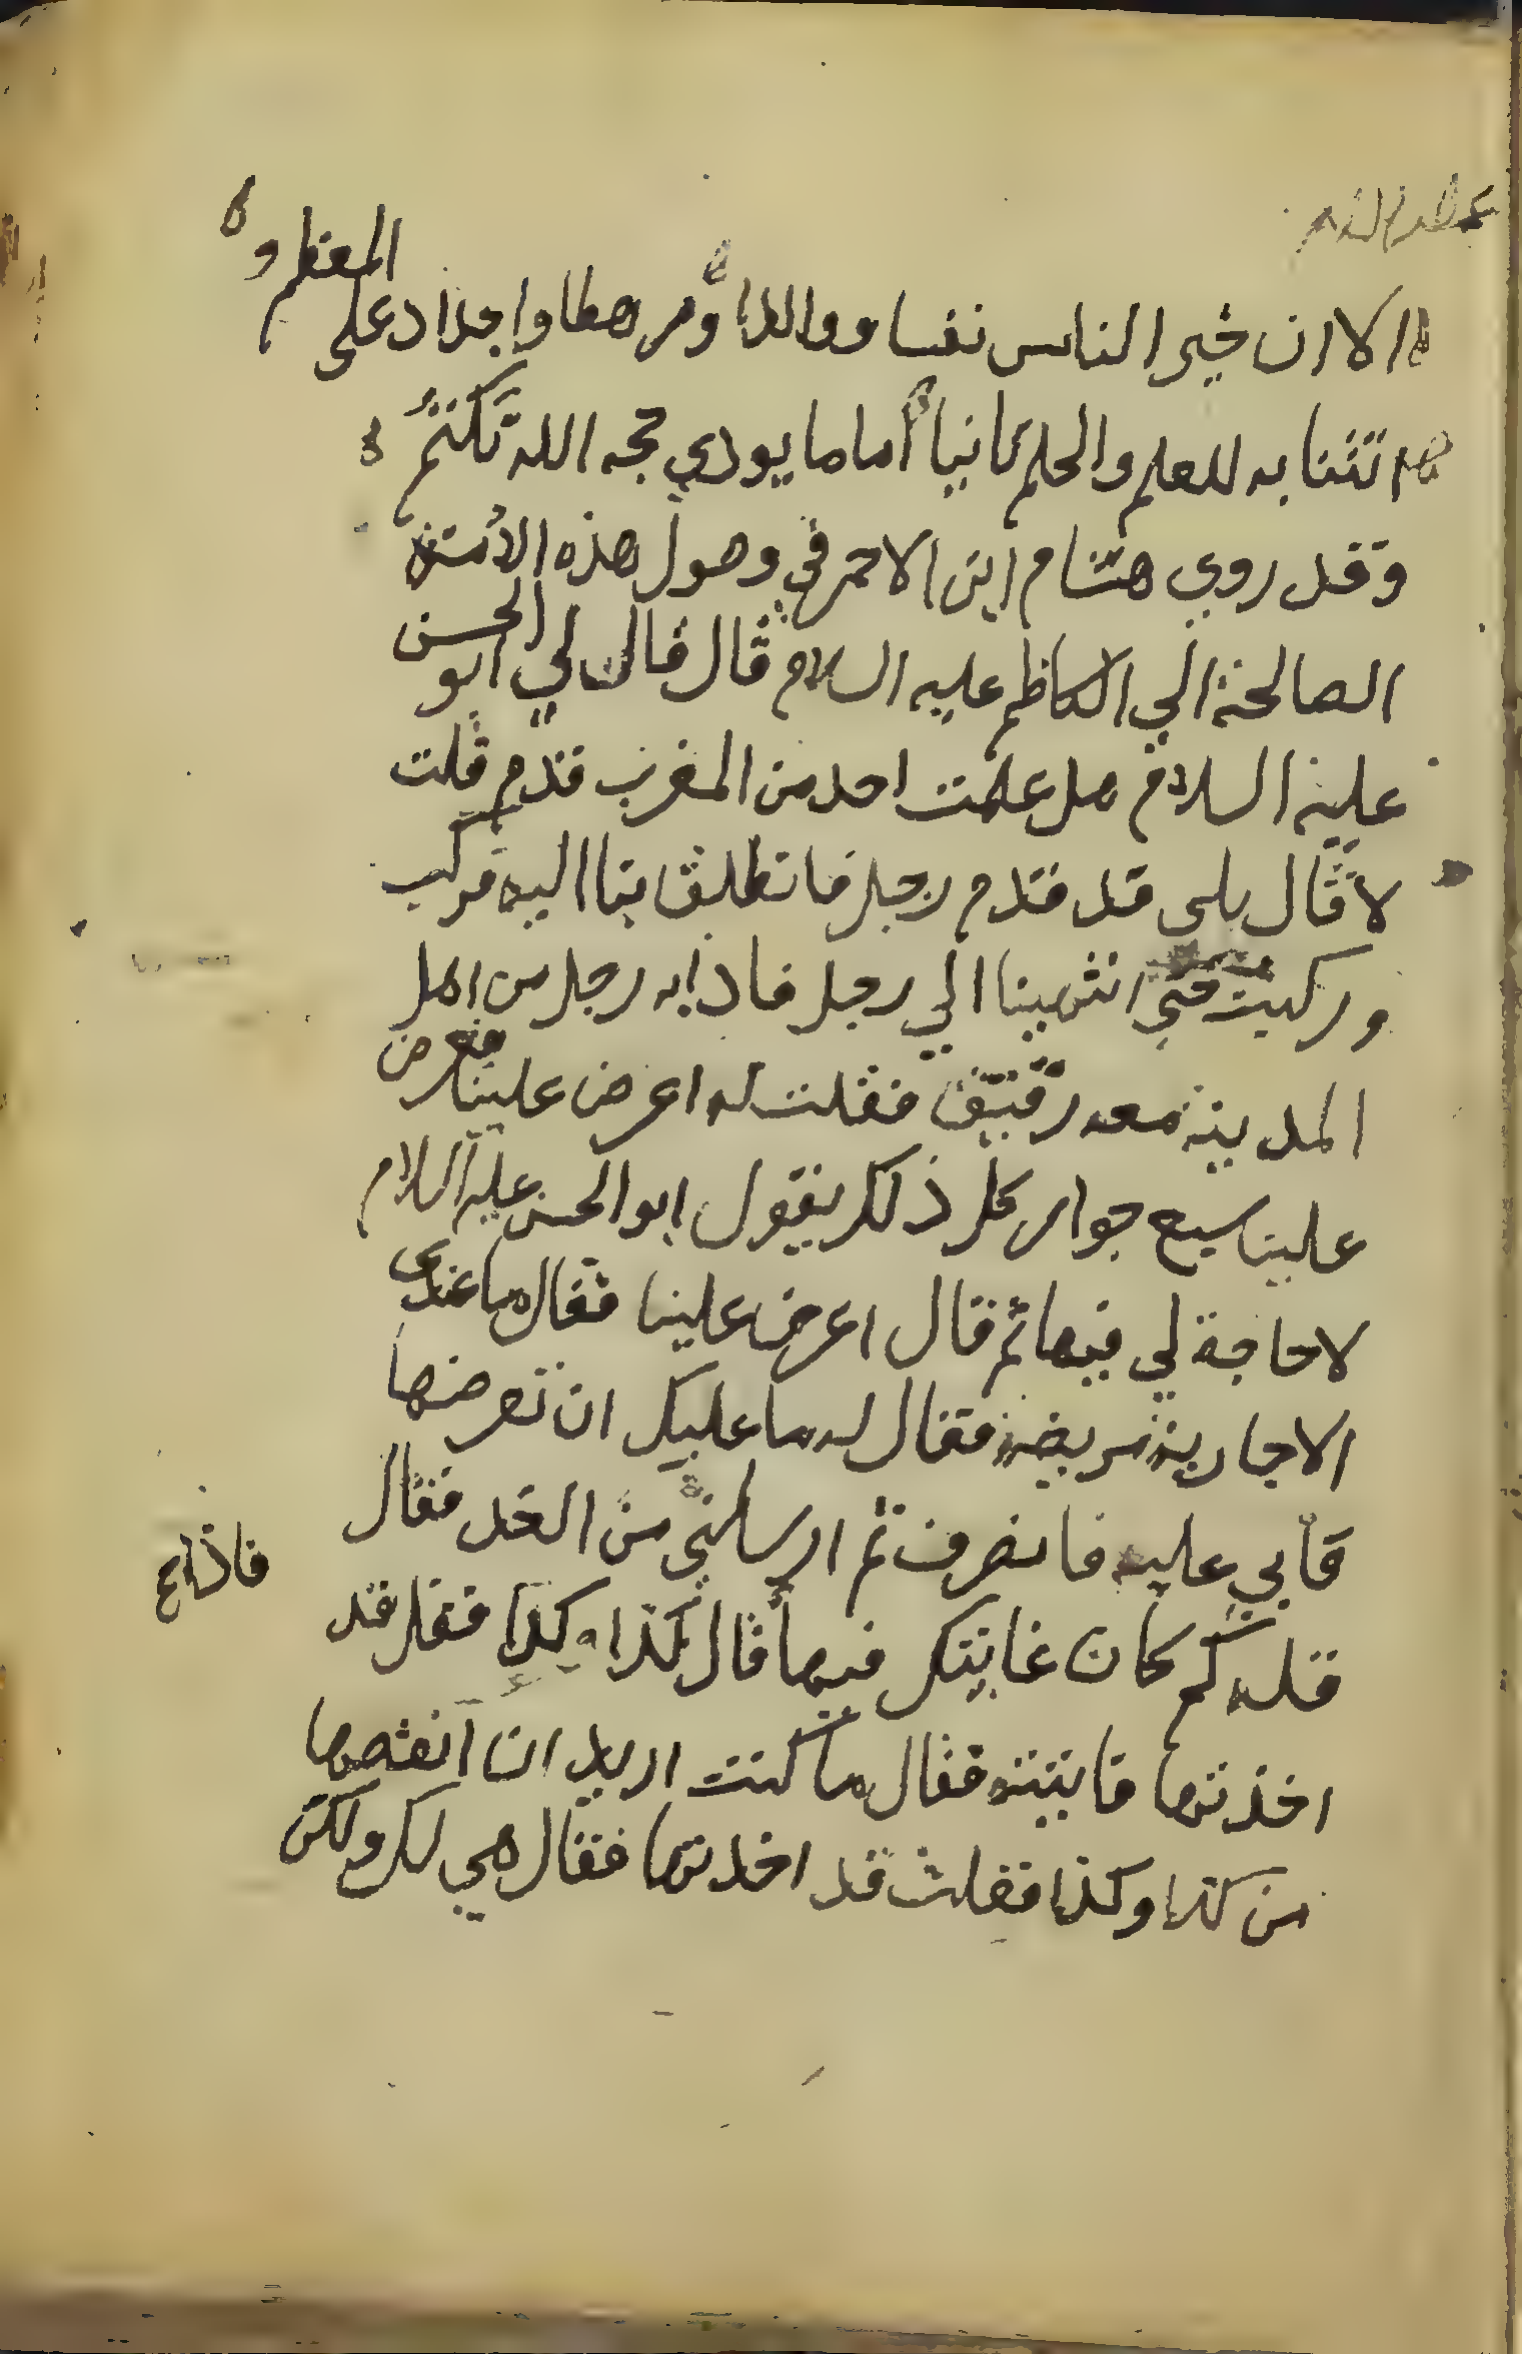 الا ان خير الناس نفسا ووالدا ورهطا واجدادعلى المعظم
اتتنا به للعلم والحلم ثانيا أماما يودي حجه الله تَكتتمُ
وقد روي هشام ابن الاحمر في وصول هذه الأمة
الصالحة الي الكاظم عليه السلام قال قال لي ابو الحسن
عليه السلام هل علمت احد من المغرب قدم قلت
لا قال بلى قد قدم رجل فانطلق بنا اليه فركب
وركبت حتي انتهينا الي رجل فاذا به رجل من اهل
المدينة معه رقيق فقلت له اعرض علينا فعرض
علينا سبع جوار كل ذلك يقول ابو الحسن عليه السلام
لا حاجة لي فيها ثم قال اعرض علينا فقال ما عندى
الا جارية مريضة فقال له ما عليك ان تعرضها
فأبي عليه فانصرف ثم ارسلني من الغد فقال
قل له كم كان غايتك فيها قال كذا وكذا فقل قد
فاذا
اخذتها فاتيته فقال ما كنت اريد ان انقصها
من كذا وكذا فقلت قد اخذتها فقال هي لك ولكن